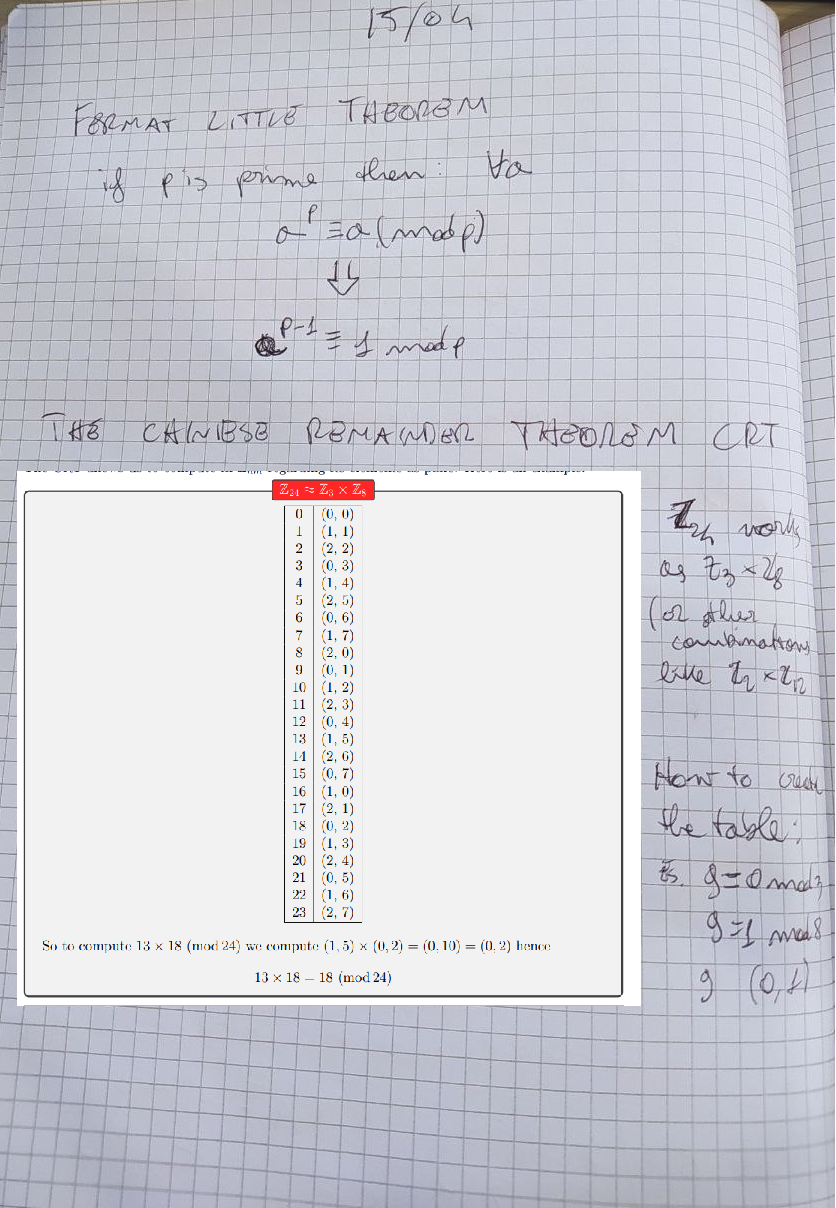 15/04
FERMAT LITTLE THEOREM
if p is prime then: ∀a
a^p ≡ a (mod p)
⇓
a^p-1 ≡ 1 mod p
THE CHINIESE REMAINDER THEOREM CRT
ℤ24 ≈ ℤ3 × ℤ8
0 (0, 0)
1 (1, 1)
2 (2, 2)
3 (0, 3)
4 (1, 4)
5 (2, 5)
6 (0, 6)
7 (1, 7)
8 (2, 0)
9 (0, 1)
10 (1, 2)
11 (2, 3)
12 (0, 4)
13 (1, 5)
14 (2, 6)
15 (0, 7)
16 (1, 0)
17 (2, 1)
18 (0, 2)
19 (1, 3)
20 (2, 4)
21 (0, 5)
22 (1, 6)
23 (2, 7)
So to compute 13 × 18 (mod 24) we compute (1, 5) × (0, 2) = (0, 10) = (0, 2) hence
13 × 18 = 18 (mod 24)
Z24 works
as Z3 × Z8
(or other
combinations
like Z2 × Z12
How to create
the table:
Es. 9 = 0 mod 3
9 = 1 mod 8
9 (0, 1)